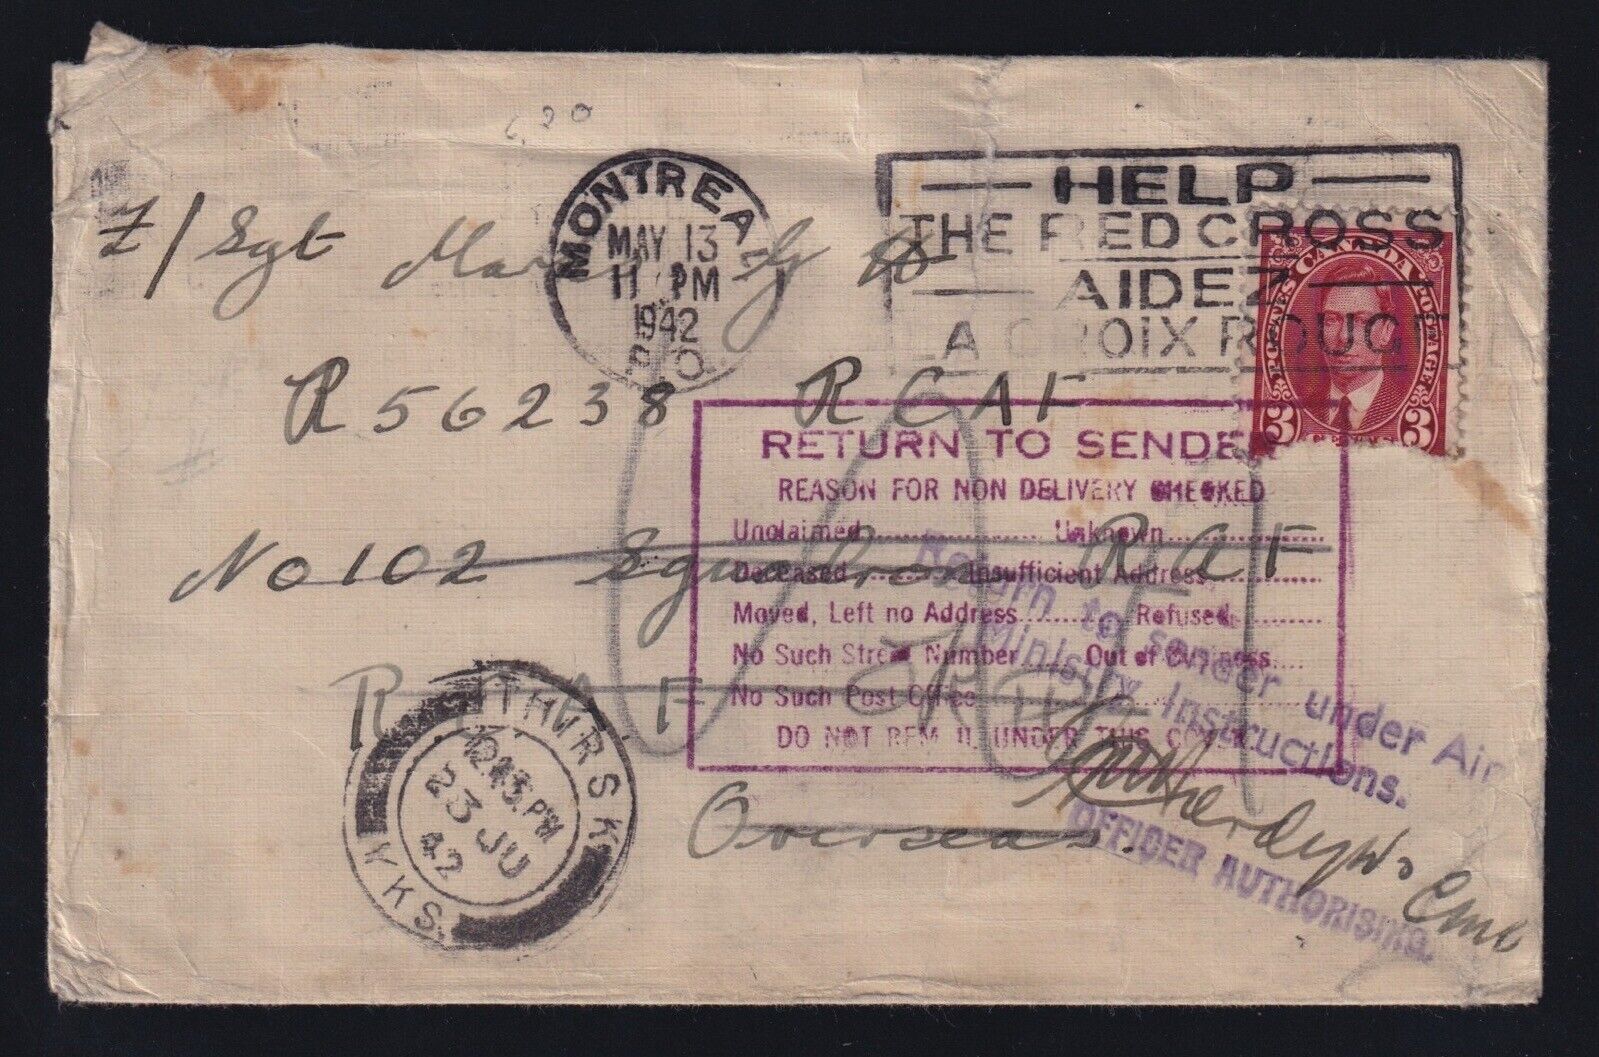 MONTREAL
MAY 13
11 PM
1942
P.Q.
HELP
THE RED CROSS
AIDEZ
LA CROIX ROUGE
POSTES CANADA POSTAGE
3 CENTS 3
Sgt
R56238 RCAF
RETURN TO SENDER
REASON FOR NON DELIVERY CHECKED
Unclaimed.................... Unknown.................
No 102 Squadron RAF
Deceased.......... Insufficient Address.............
Moved, Left no Address.......... Refused.............
No Such Street Number Out of Business....
No Such Post Office..........
R.C.A.F
DO NOT REMAIL UNDER THIS COVER
Return to sender under Air
Ministry Instructions.
Overseas.
OFFICER AUTHORISING.
THIRSK
12.45 PM
23 JU
42
YORKS.